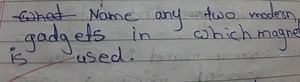 Name any two modern
gadgets in which magne
is used.